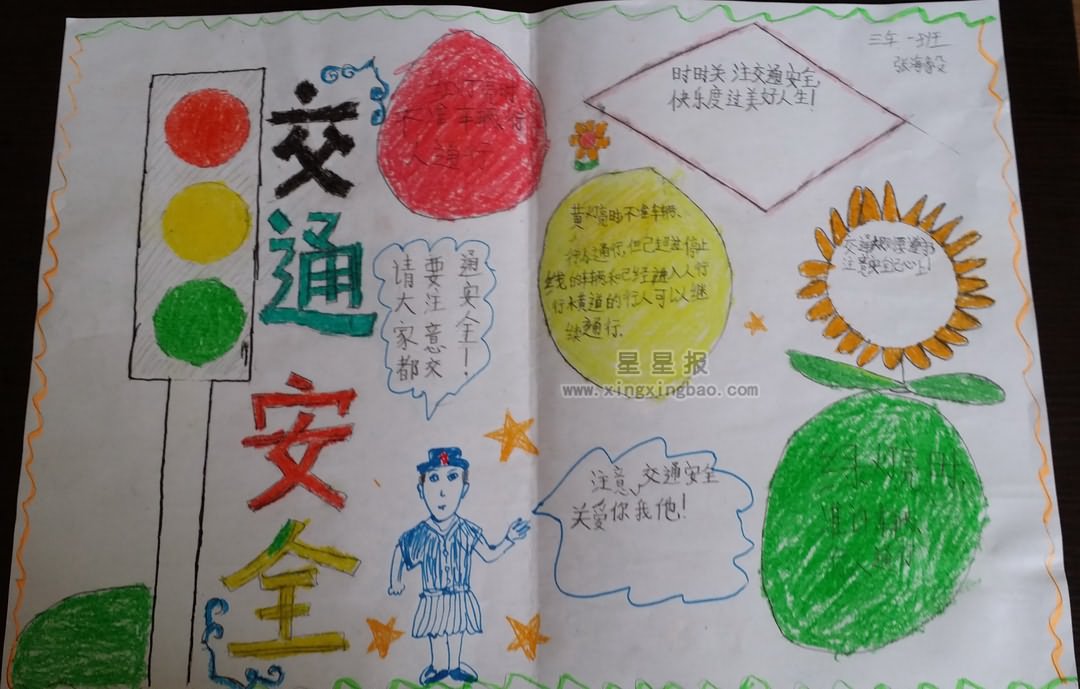 交通安全
三年一班
张海
红灯亮时
不准车辆行
人通行
时时关注交通安全,
快乐度过美好人生!
黄灯亮时不准车辆、
行人通行,但已超过停止
线的车辆和已经进入人行
行横道的行人可以继
续通行.
交通规则要遵守
注意安全记心上!
请大家都
要注意交
通安全!
星星报
www.xingxingbao.com
注意交通安全
关爱你我他!
灯亮时,
准许车辆